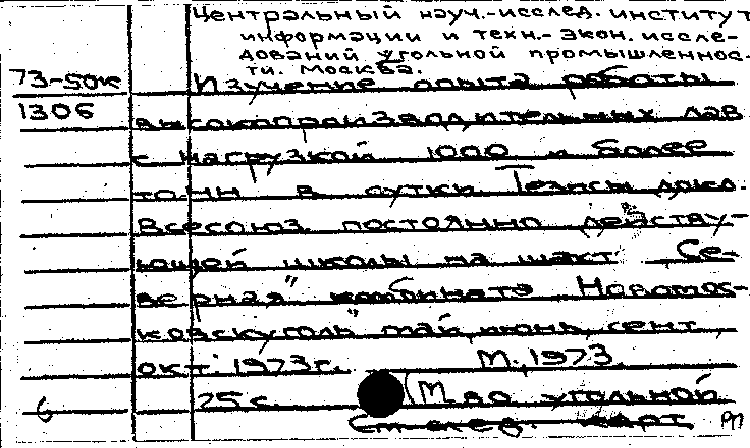 Центральный науч.-исслед. институт
информации и техн.-экон. иссле-
дований угольной промышленнос-
ти. Москва.
73-50к Изучение опыта работы
1306 высокопроизводительных лав
с нагрузкой 1000 и более
тонн в сутки. Тезисы докл.
Всесоюз. постоянно действу-
ющей школы на шахт. Се-
верная" комбината „Новомос-
ковскуголь" май, июнь, сент.,
окт. 1973г. М., 1973.
6 25 с. (М-во угольной
См. след. карт. РП